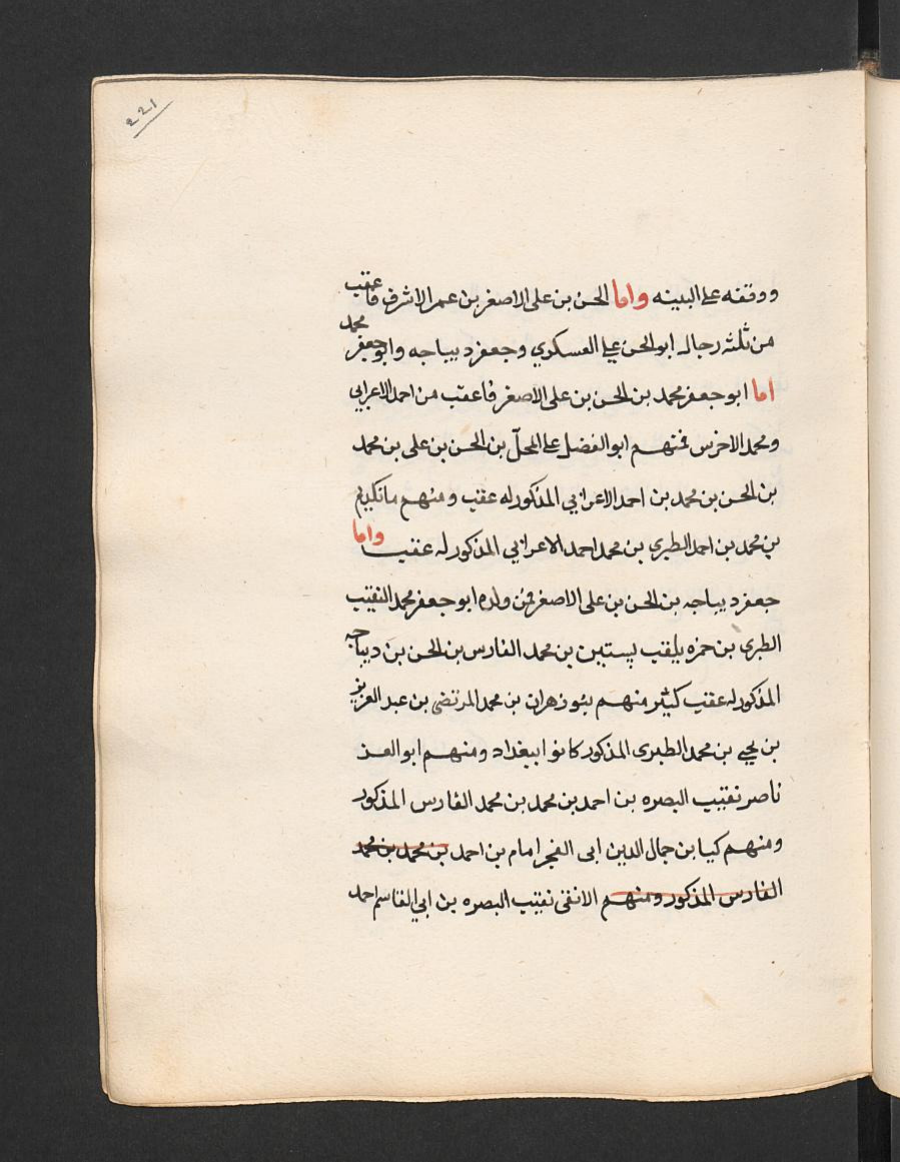 221
ووقفه على البينه واما الحسن بن على الاصغر بن عمر الاشرف فاعقب
من ثلثه رجال ابو الحسن على العسكري وجعفر ديباجه وابو جعفر محمد
اما ابو جعفر محمد بن الحسن بن على الاصغر فاعقب من احمد الاعرابي
ومحمد الاخرس فمنهم ابو الفضل على المجل بن الحسن بن على بن محمد
بن الحسن بن محمد بن احمد الاعرابي المذكور له عقب ومنهم مانكديم
بن محمد بن احمد الطبري بن محمد احمد الاعرابي المذكور له عقب واما
جعفر ديباجه بن الحسن بن على الاصغر فمن ولده ابو جعفر محمد النقيب
الطبرى بن حمزه يلقب بستين بن محمد الفارس بن الحسن بن ديباجه
المذكور له عقب كثير منهم بنو زهران بن محمد المرتضى بن عبد العزيز
بن يحيى بن محمد الطبرى المذكور كانوا ببغداد ومنهم ابو العز
ناصر نقيب البصره بن احمد بن محمد بن محمد الفارس المذكور
ومنهم كيا بن جمال الدين ابى الفجر امام بن احمد بن محمد بن محمد
الفارس المذكور ومنهم الانقى نقيب البصره بن ابي القاسم احمد